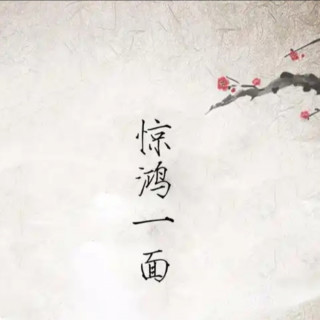 惊鸿一面